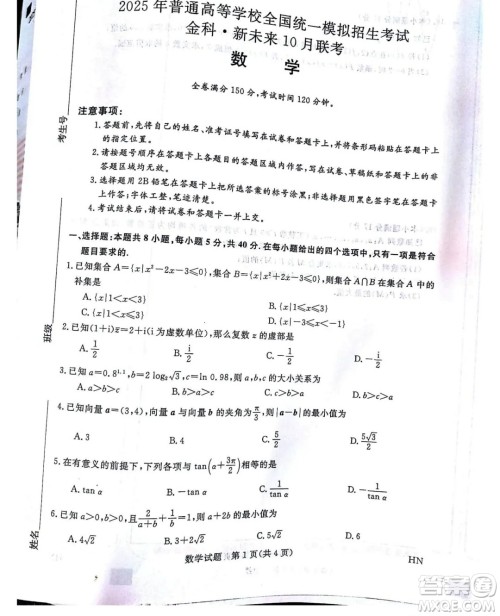 2025年普通高等学校全国统一模拟招生考试
金科·新未来10月联考
数 学
全卷满分150分,考试时间120分钟。
注意事项:
1.答题前,先将自己的姓名、准考证号填写在试卷和答题卡上,并将条形码粘贴在答题卡上
的指定位置。
2.请按题号顺序在答题卡上各题目的答题区域内作答,写在试卷、草稿纸和答题卡上的非
答题区域均无效。
3.选择题用2B铅笔在答题卡上把所选答案的标号涂黑;非选择题用黑色签字笔在答题卡上
作答;字体工整,笔迹清楚。
4.考试结束后,请将试卷和答题卡一并上交。
一、选择题:本题共8小题,每小题5分,共40分。在每小题给出的四个选项中,只有一项是符合
题目要求的.
1.已知集合A={x|x²-2x-3≤0},集合B={x||x-3|≤0},则集合A∩B在集合A中的
补集是
A.{x|1<x<3} B.{x|1<x≤3}
2.已知(1+i)z̄=2+i(i为虚数单位),那么复数z的虚部为
A.1/2 B.i/2 D.-1/2
3.已知a=0.8^1.1,b=2log₅√3,c=ln 0.98,则a,b,c的大小关系为
A.a>b>c
4.已知向量a=(3,4),向量a与向量b的夹角为π/3,则|a-b|的最小值为
A.3 B.4 C.5/2 D.5√3/2
5.在有意义的前提下,下列值一定与tan(α+3π/2)相等的是
A.tan α B.-tan α C.1/tan α D.-1/tan α
6.已知a>0,b>0,且2/(a+b)+1/b=1,则a+2b的最小值为
A.4√2 C.5√2 D.6
数学试题 第1页(共4页)
HN
考生号
班级
姓名
答案圈